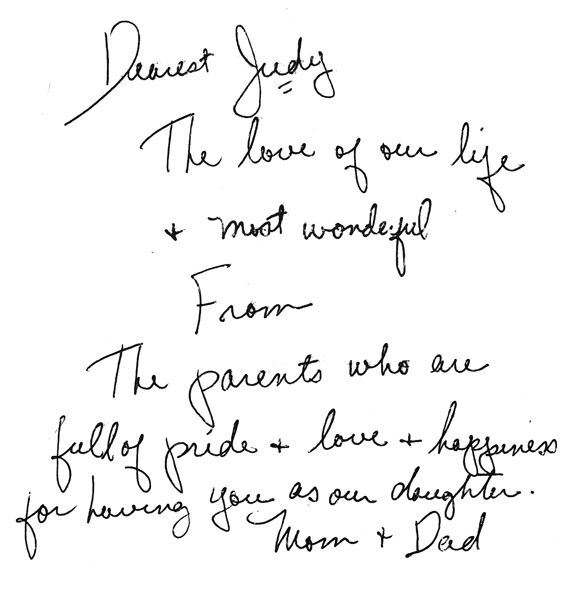 Dearest Judy
The love of our life
+ most wonderful
From
The parents who are
full of pride + love + happiness
for having you as our daughter.
Mom + Dad